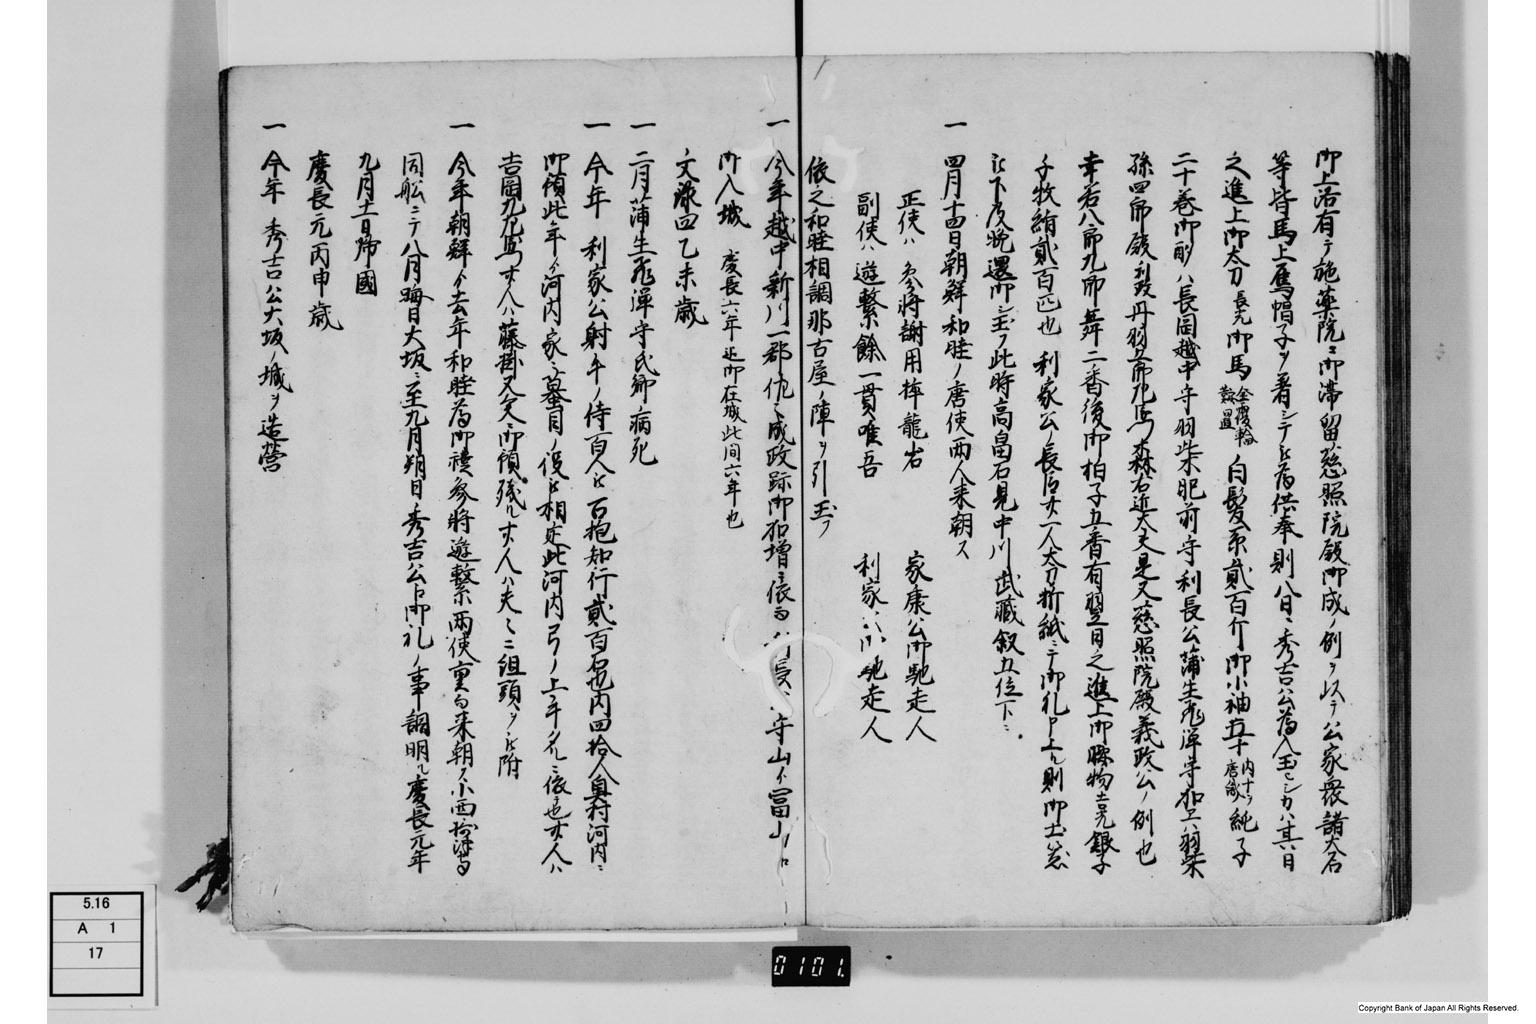 御上洛有テ施薬院ニ御滞留慈照院殿御成ノ例ヲ以テ公家衆諸大名
等皆馬上烏帽子ヲ着シテ被為供奉則八日ニ秀吉公為入玉シカハ其日
之進上御太刀 長光 御馬 金覆輪 鞍置 白髪糸貳百斤御小袖五十 内十ヲ唐織 純子
二十巻御酌ハ長岡越中守羽柴肥前守利長公蒲生飛弾守加ヱハ羽柴
孫四郎殿利政丹羽五郎左馬森右近大夫是又慈照院殿義政公ノ例也
幸若八郎九郎舞二番後御拍子五番有翌日之進上御腰物 吉光 銀子
千枚綿貳百匹也 利家公ノ長臣十一人太刀折紙ニテ御礼申上ル則御土器
被下及晩還御シ玉フ此時高畠石見中川武蔵叙五位下ニ
一 四月十四日朝鮮和睦ノ唐使両人来朝ス
正使ハ 参将謝用梓龍岩 家康公御馳走人
副使ハ 遊撃徐一貫唯吾 利家公御馳走人
依之和睦相調那古屋ノ陣ヲ引玉フ
一 今年越中新川一郡佐々成政跡御加増ニ依而利長公守山ヨリ富山ノ口
御入城 慶長六年迄御在城此間六年也
文禄四乙未歳
一 二月蒲生飛弾守氏郷病死
一 今年 利家公射手ノ侍百人被召抱知行貳百石也内四拾人奥村河内ニ
御預此年ヨリ河内家ニ蟇目ノ役被相定此河内弓ノ上手タルニ依也 人ハ
吉岡九左馬 人ハ藤掛又六ニ御預残ル 人ハ夫々ニ組頭ヲ被附
一 今年朝鮮ヨリ去年和睦為御禮参将遊撃両使重而来朝ス小西摂津守
同舩ニテ八月晦日大坂ニ至九月朔日秀吉公ヱ御礼ノ事調明ル慶長元年
九月十一日帰國
慶長元丙申歳
一 今年 秀吉公大坂ノ城ヲ造営
5.16
A 1
17
0101.
Copyright Bank of Japan All Rights Reserved.